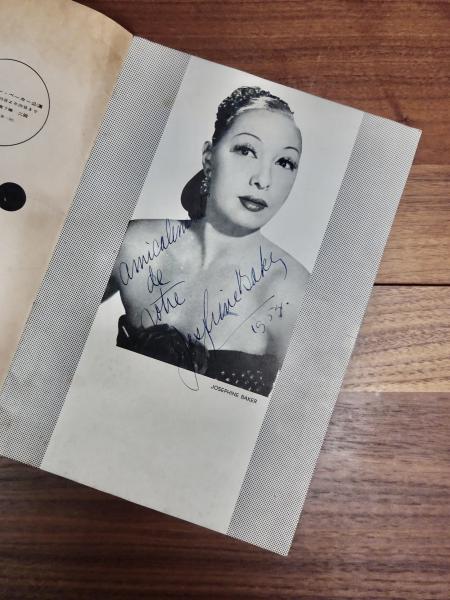 Amicalement
de
Votre
Josephine Baker
1954.
JOSEPHINE BAKER